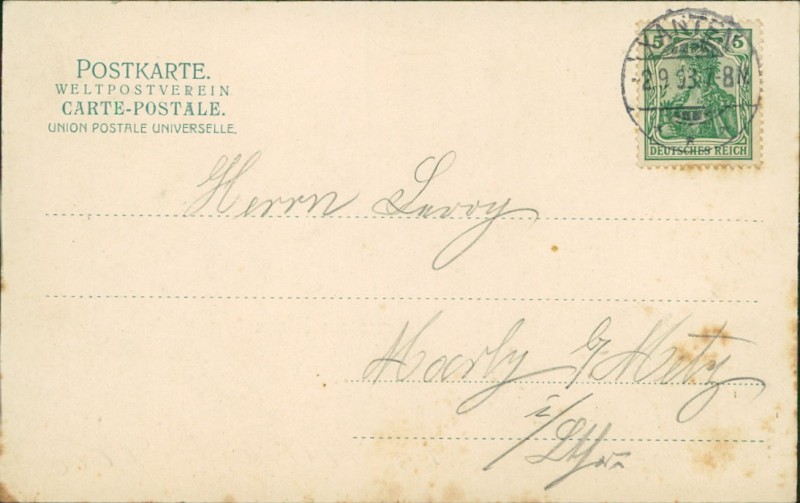 POSTKARTE.
WELTPOSTVEREIN
CARTE-POSTALE.
UNION POSTALE UNIVERSELLE.
XANTEN
5 5
2.9.03. 7-8N.
DEUTSCHES REICH
Herrn Leroy
Marly b/Metz
i/Lthr.